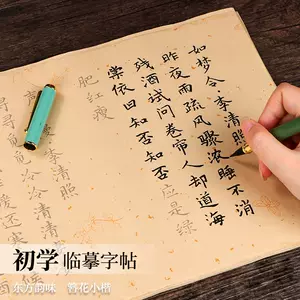 如梦令·李清照
昨夜雨疏风骤浓睡不消
残酒试问卷帘人却道海
棠依旧知否知否应是绿
肥红瘦
李清照
冷冷清清
还寒
初学 临摹字帖
东方韵味 簪花小楷